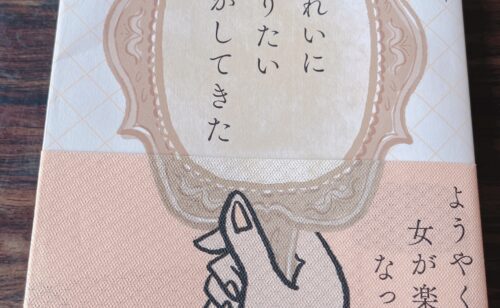 れいに
りたい
がしてきた
ようやく
女が楽
なっ